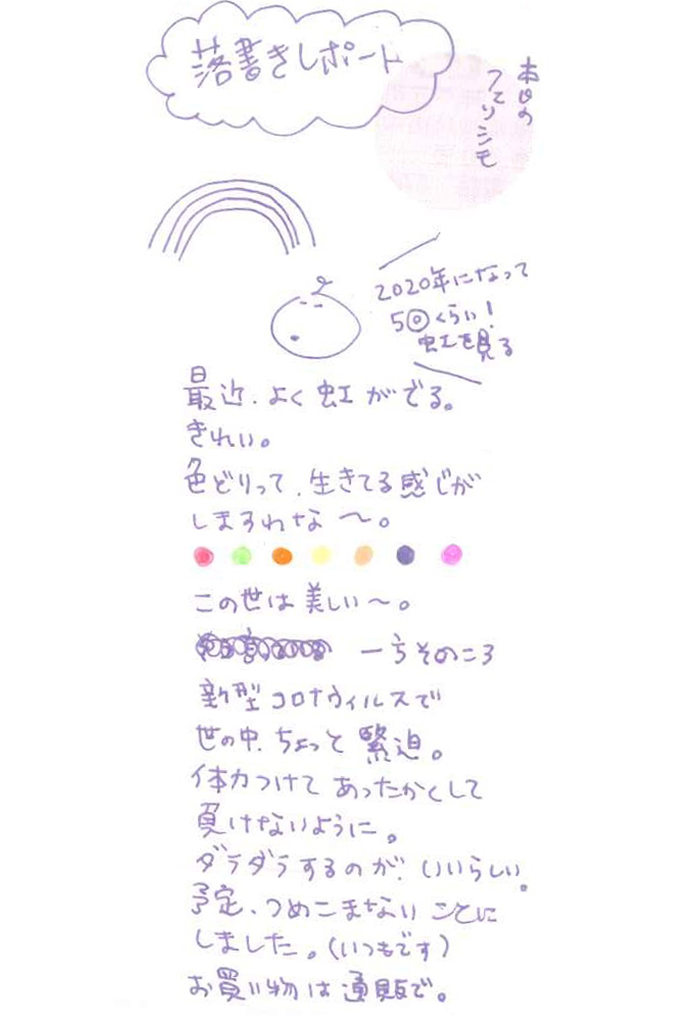 落書きレポート
本日の
フェリシモ
2020年になって
5回くらい!
虹を見る
最近、よく虹がでる。
きれい。
色どりって、生きてる感じが
しますわな〜。
この世は美しい〜。
一方そのころ
新型コロナウィルスで
世の中、ちょっと緊迫。
体力つけてあったかくして
負けないように。
ダラダラするのが、いいらしい。
予定、つめこまないことに
しました。(いつもです)
お買い物は通販で。